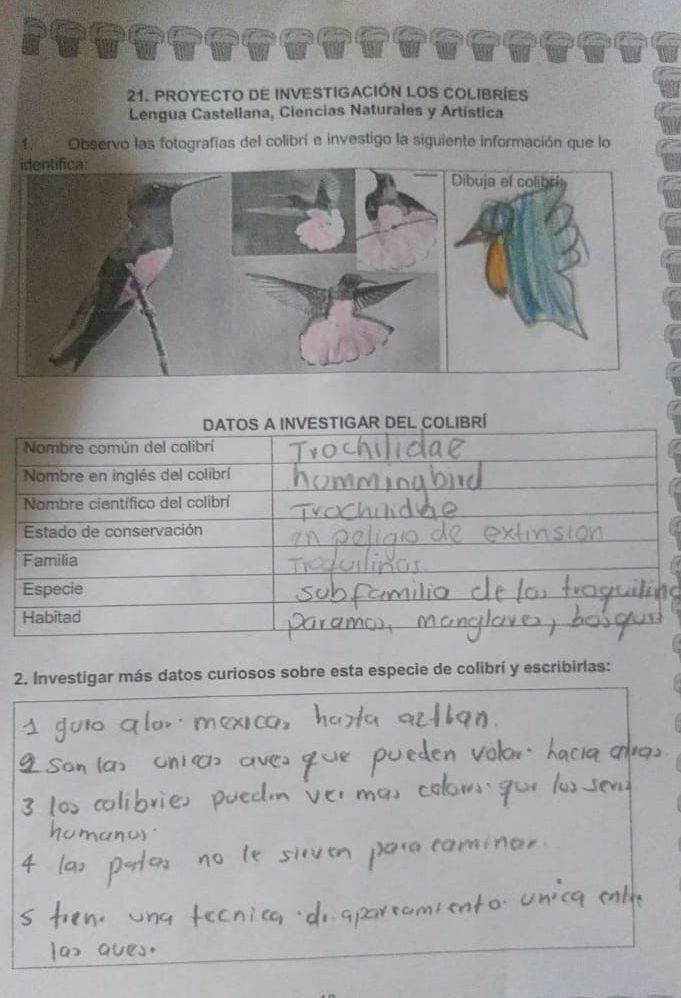 21. PROYECTO DE INVESTIGACIÓN LOS COLIBRÍES
Lengua Castellana, Ciencias Naturales y Artística
1. Observo las fotografías del colibrí e investigo la siguiente información que lo
identifica:
Dibuja el colibrí
DATOS A INVESTIGAR DEL COLIBRÍ
Nombre común del colibrí Trochilidae
Nombre en inglés del colibrí hummingbird
Nombre científico del colibrí Trochilidae
Estado de conservación en peligio de extinsion
Familia
Especie subfamilia de las traquilina
Habitad paramos, manglares, bosques
2. Investigar más datos curiosos sobre esta especie de colibrí y escribirlas:
1 guio a los mexicas hasta aztlan.
2 son las unicas aves que pueden volar hacia atras
3 los colibries pueden ver mas colores que los seres
humanos
4 las patas no le sirven para caminar.
5 tiene una tecnica de apareamiento unica entre
las aves.